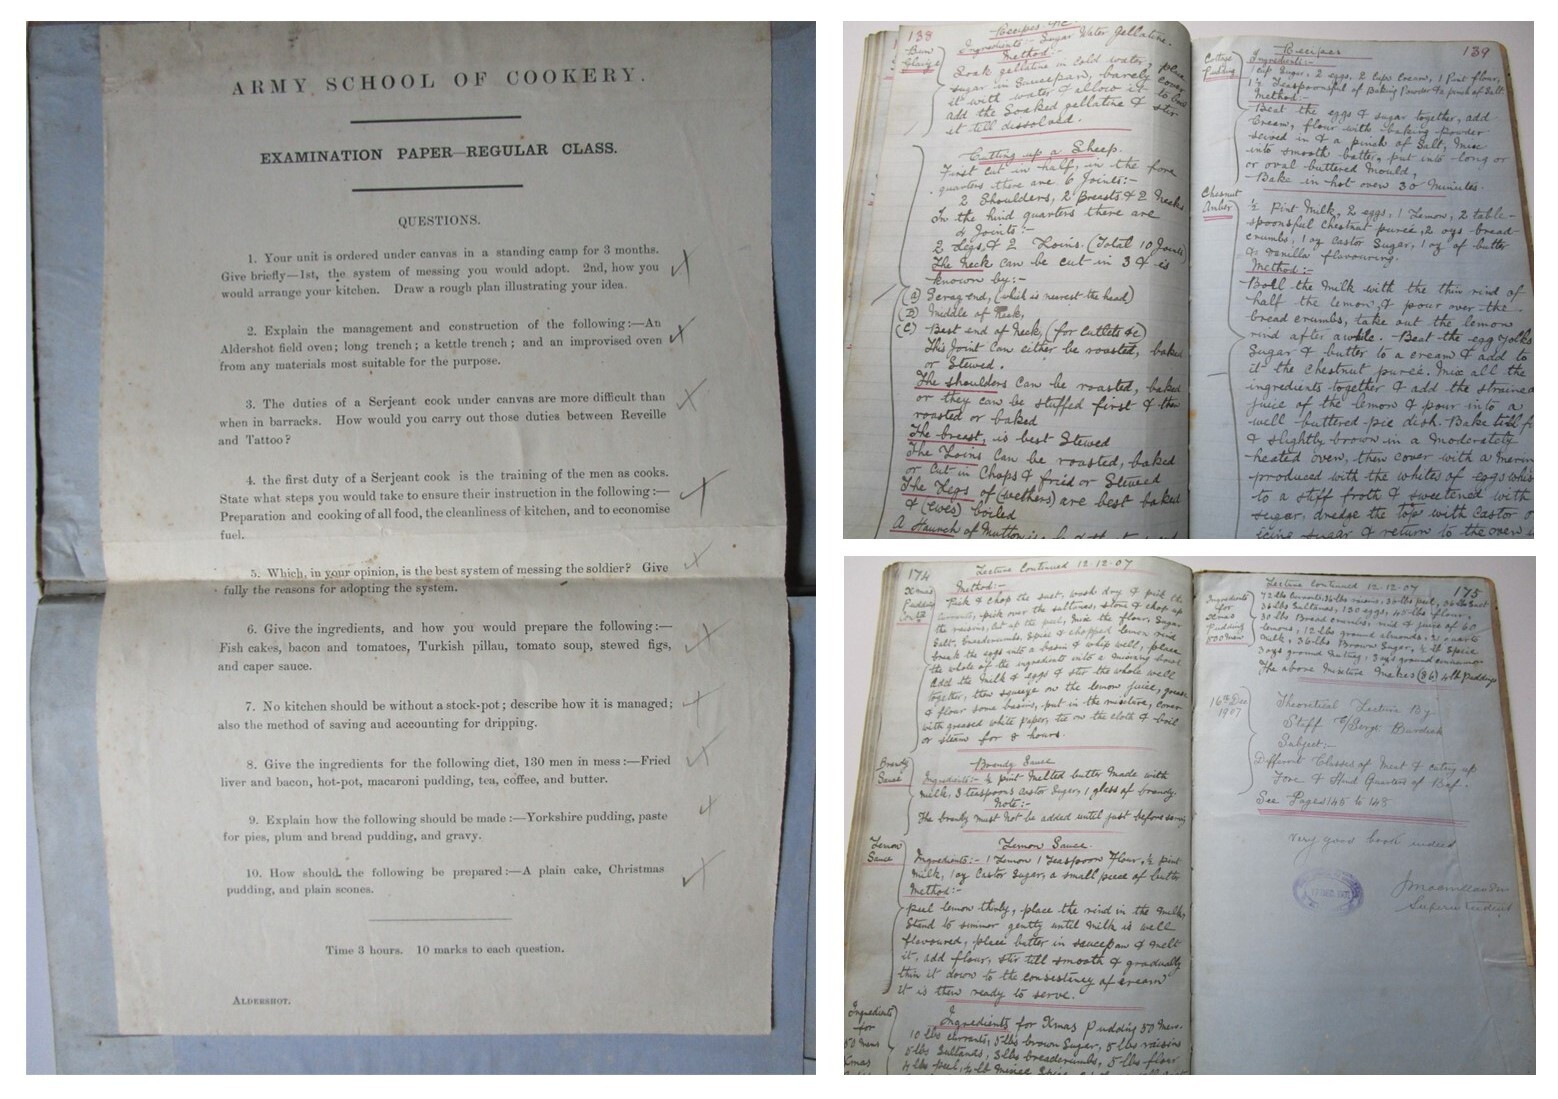 ARMY SCHOOL OF COOKERY.
EXAMINATION PAPER—REGULAR CLASS.
QUESTIONS.
1. Your unit is ordered under canvas in a standing camp for 3 months.
Give briefly—1st, the system of messing you would adopt. 2nd, how you
would arrange your kitchen. Draw a rough plan illustrating your idea.
2. Explain the management and construction of the following:—An
Aldershot field oven; long trench; a kettle trench; and an improvised oven
from any materials most suitable for the purpose.
3. The duties of a Serjeant cook under canvas are more difficult than
when in barracks. How would you carry out those duties between Reveille
and Tattoo?
4. the first duty of a Serjeant cook is the training of the men as cooks.
State what steps you would take to ensure their instruction in the following:—
Preparation and cooking of all food, the cleanliness of kitchen, and to economise
fuel.
5. Which, in your opinion, is the best system of messing the soldier? Give
fully the reasons for adopting the system.
6. Give the ingredients, and how you would prepare the following:—
Fish cakes, bacon and tomatoes, Turkish pillau, tomato soup, stewed figs,
and caper sauce.
7. No kitchen should be without a stock-pot; describe how it is managed;
also the method of saving and accounting for dripping.
8. Give the ingredients for the following diet, 130 men in mess:—Fried
liver and bacon, hot-pot, macaroni pudding, tea, coffee, and butter.
9. Explain how the following should be made:—Yorkshire pudding, paste
for pies, plum and bread pudding, and gravy.
10. How should the following be prepared:—A plain cake, Christmas
pudding, and plain scones.
Time 3 hours. 10 marks to each question.
ALDERSHOT.
138
Recipes
Bun
Glaize
Ingredients:- Sugar Water Gellatine.
Method:-
Soak gellatine in cold water, place
sugar in Saucepan, barely cover
it with water & allow it to boil
add the Soaked gellatine & stir
it till dissolved.
Cutting up a Sheep.
First cut in half, in the fore
quarters there are 6 Joints:-
2 Shoulders, 2 Breasts & 2 Necks
In the hind quarters there are
4 Joints:-
2 Legs, & 2 Loins. (Total 10 Joints)
The Neck can be cut in 3 & is
known by:-
(A) Scrag end, (which is nearest the head)
(B) Middle of Neck,
(C) Best end of Neck, (for Cutlets &c)
This Joint can either be roasted, baked
or Stewed.
The shoulders can be roasted, baked
or they can be stuffed first & then
roasted or baked
The breast, is best Stewed
The Loins can be roasted, baked
or Cut in Chops & fried or Stewed
The Legs of (wethers) are best baked
& (ewes) boiled
A Haunch of Mutton is
Recipes 139
Cottage
Pudding
Ingredients:-
1 cup Sugar, 2 eggs, 2 cups Cream, 1 Pint flour,
1½ Teaspoonsful of Baking Powder & a pinch of Salt.
Method:-
Beat the eggs & sugar together, add
Cream, flour with baking powder
seived in & a pinch of Salt, Mix
into smooth batter, put into long or
or oval buttered Mould,
Bake in hot oven 30 Minutes.
Chesnut
Amber
½ Pint Milk, 2 eggs, 1 Lemon, 2 table-
spoonsful chestnut pureé, 2 ozs bread-
crumbs, 1 oz Castor Sugar, 1 oz of butter
& Vanilla flavouring.
Method:-
Boil the Milk with the thin rind of
half the lemon, & pour over the
bread crumbs, take out the lemon
rind after awhile. Beat the egg yolks
Sugar & butter to a cream & add to
it the Chestnut pureé. Mix all the
ingredients together & add the strained
juice of the lemon & pour into a
well buttered pie dish. Bake till
& slightly brown in a moderately
heated oven, then cover with a
produced with the whites of eggs
to a stiff froth & sweetened with
sugar, dredge the top with Castor or
icing sugar & return to the oven
174
Lecture Continued 12.12.07
Xmas
Pudding
Contd
Method:-
Pick & chop the suet, wash dry & pick the
currants, pick over the sultanas, stone & chop up
the raisins, cut up the peel, Mix the flour, Sugar
Salt, breadcrumbs, Spice & chopped lemon rind
break the eggs into a basin & whip well, place
the whole of the ingredients into a mixing bowl
add the Milk & eggs & stir the whole well
together, then squeeze in the lemon juice, grease
& flour some basins, put in the mixture, cover
with greased white paper, tie on the cloth & boil
or steam for 8 hours.
Brandy
Sauce
Brandy Sauce
Ingredients:- ½ pint Melted butter Made with
Milk, 3 teaspoons castor Sugar, 1 glass of brandy.
Note:-
The brandy must not be added until just before serving
Lemon
Sauce
Lemon Sauce.
Ingredients:- 1 Lemon 1 Teaspoon flour, ½ pint
Milk, 1 oz Castor Sugar, a small piece of butter
Method:-
Peel lemon thinly, place the rind in the Milk,
Stand to simmer gently until Milk is well
flavoured, place butter in saucepan & melt
it, add flour, stir till smooth & gradually
thin it down to the consistency of cream
it is then ready to serve.
Ingredients
for
50 Mens
Xmas
Ingredients for Xmas Pudding 50 Men.
10 lbs currants, 5 lbs brown Sugar, 5 lbs raisins
5 lbs Sultanas, 3 lbs breadcrumbs, 5 lbs flour
Lecture Continued 12.12.07 175
Ingredients
for
Xmas
Pudding
500 Men
72 lbs currants, 36 lbs raisins, 30 lbs peel, 36 lbs Suet
36 lbs Sultanas, 130 eggs, 45 lbs flour,
30 lbs Bread crumbs, rind & juice of 60
lemons, 12 lbs ground almonds, 2 quarts
Milk, 36 lbs Brown Sugar, ½ lb Spice
3 ozs ground Nutmeg, 3 ozs ground cinnamon
The above Mixture Makes (86) 4 lb Puddings
16th Dec
1907
Theoretical Lecture By
Staff Q/Sergt Burdick
Subject:-
Different Classes of Meat & cutting up
Fore & Hind Quarters of Beef.
See Pages 145 to 148
Very good book indeed
Superintendent